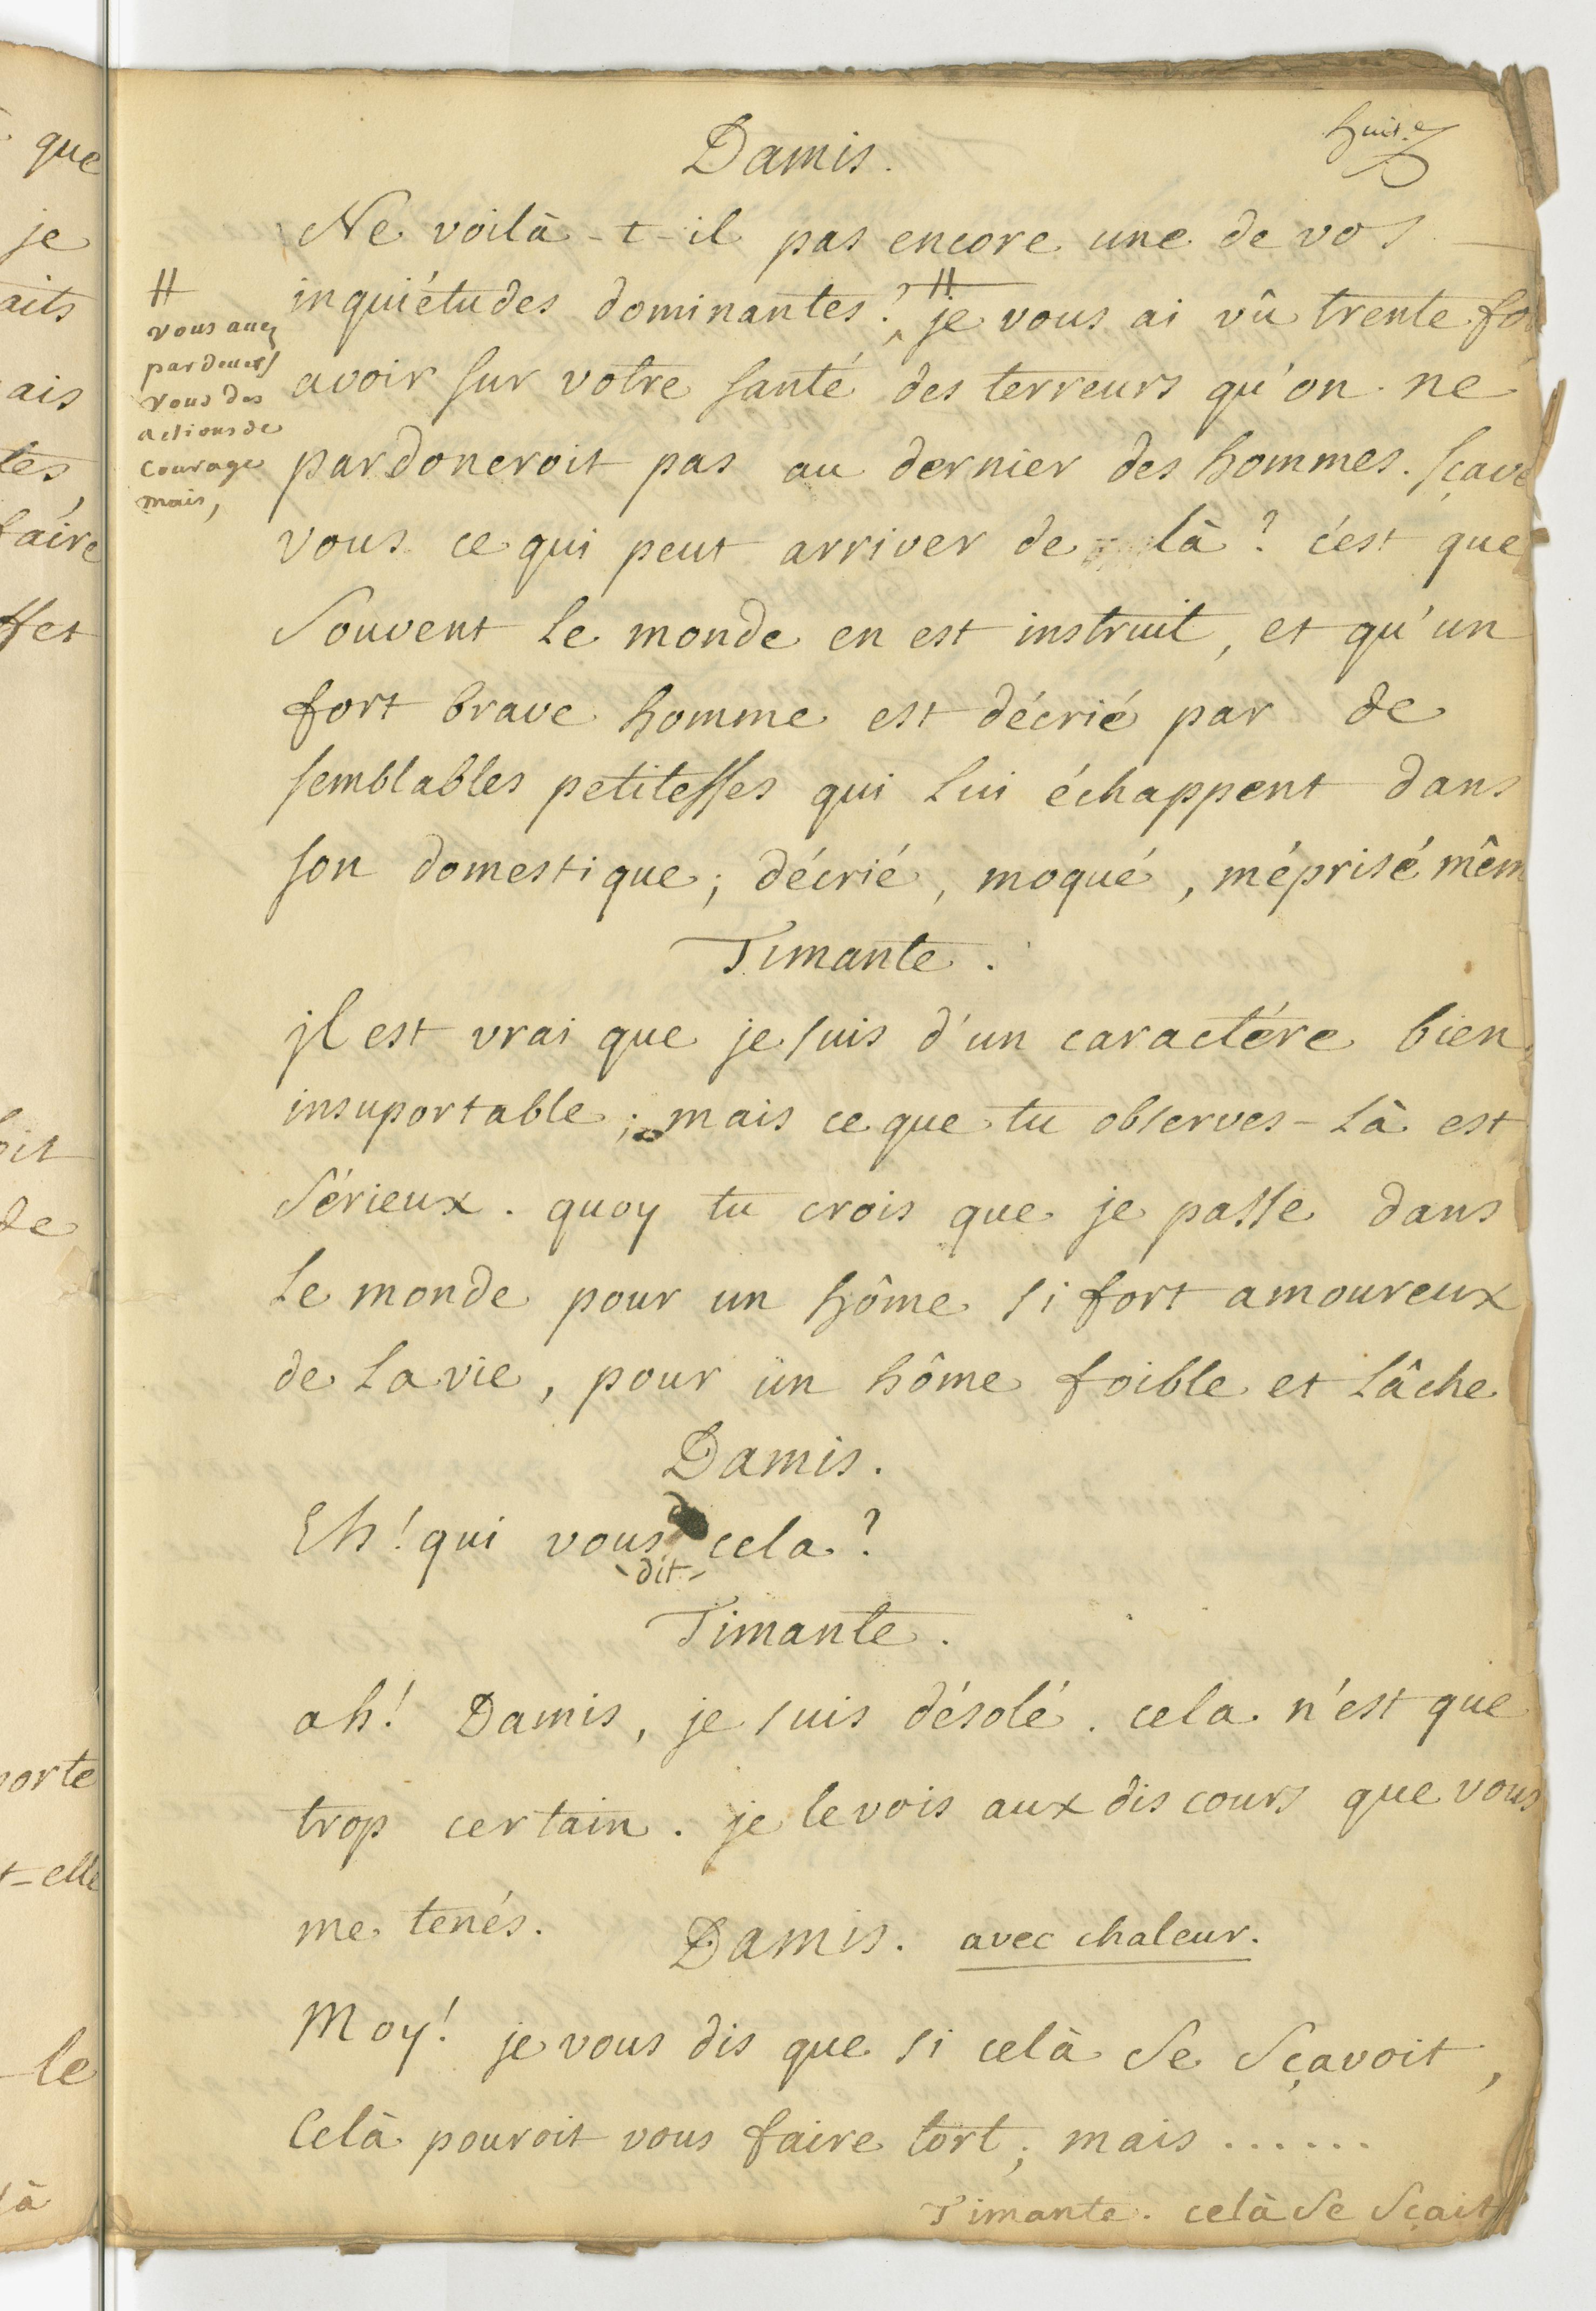 huit.e
Damis.
Ne voilà-t-il pas encore une de vos
inquiétudes dominantes? # je vous ai vû trente fo
avoir sur votre santé des terreurs qu'on ne
pardoneroit pas au dernier des hommes. sçave
vous ce qui peut arriver de là? c'est que
Souvent le monde en est instruit, et qu'un
fort brave homme est décrié par de
semblables petitesses qui lui échappent dans
son domestique; décrié, moqué, méprisé mêm
#
vous avez
pardevers
vous des
actions de
courage
mais,
Timante.
jl est vrai que je suis d'un caractére bien
insuportable; mais ce que tu observes-là est
Sérieux. quoy tu crois que je passe dans
le monde pour un hôme si fort amoureux
de la vie, pour un hôme foible et lâche
Damis.
Eh! qui vous dit cela?
Timante.
ah! Damis, je suis désolé. cela n'est que
trop certain. je le vois aux discours que vous
me tenés.
Damis. avec chaleur.
Moy! je vous dis que si celà se sçavoit,
Celà pouroit vous faire tort; mais ......
Timante. celà se sçait
que
je
aits
ais
tes,
faire
ffet
oit
de
porte
t-elle
le
à